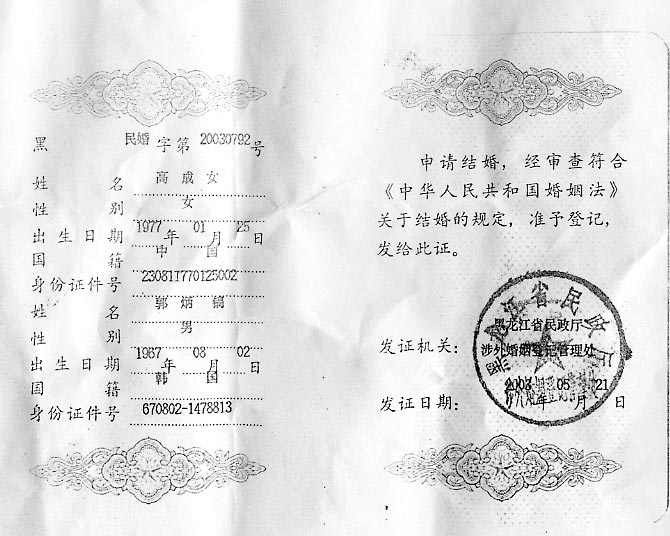 黑 民婚 字第 20030792 号
姓名 高成女
性别 女
出生日期 1977 年 01 月 25 日
国籍 中国
身份证件号 230811770125002
姓名 郭炳
性别 男
出生日期 1967 年 08 月 02 日
国籍 韩国
身份证件号 670802-1478813
申请结婚，经审查符合
《中华人民共和国婚姻法》
关于结婚的规定，准予登记，
发给此证。
黑龙江省民政厅
发证机关：黑龙江省民政厅
涉外婚姻登记管理处
发证日期：2003 年 05 月 21 日